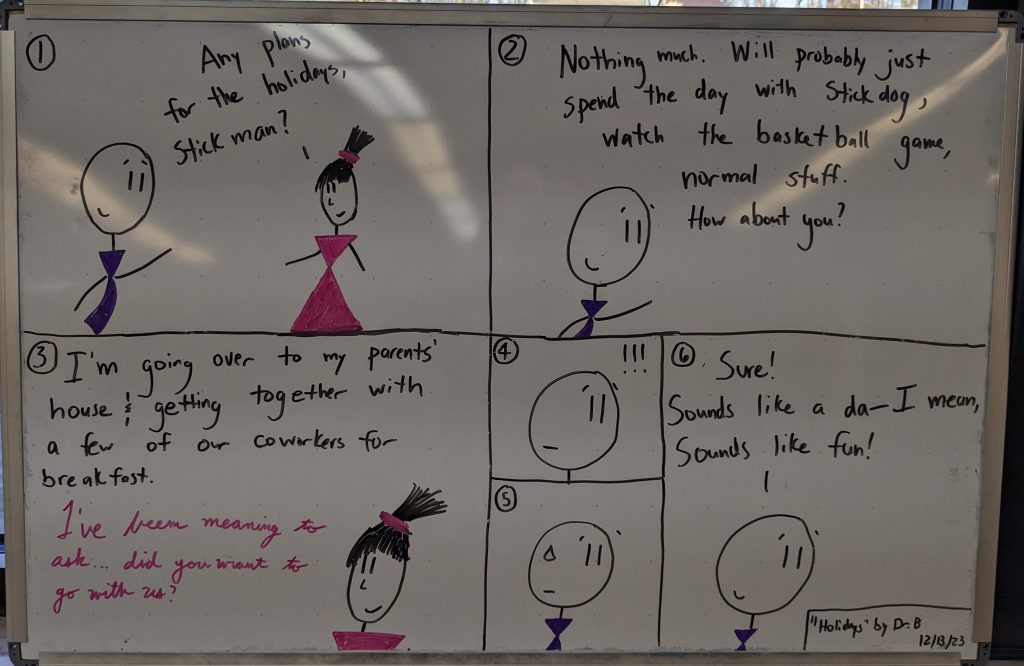 ①
Any plans
for the holidays,
Stick man?
②
Nothing much. Will probably just
spend the day with Stick dog,
watch the basketball game,
normal stuff.
How about you?
③
I'm going over to my parents'
house & getting together with
a few of our coworkers for
breakfast.
I've been meaning to
ask... did you want to
go with us?
④
!!!
⑤
⑥
Sure!
Sounds like a da— I mean,
Sounds like fun!
"Holidays" by Dr. B
12/13/23